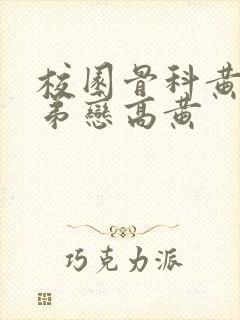 校園骨科黃
弟戀高黃
巧克力派